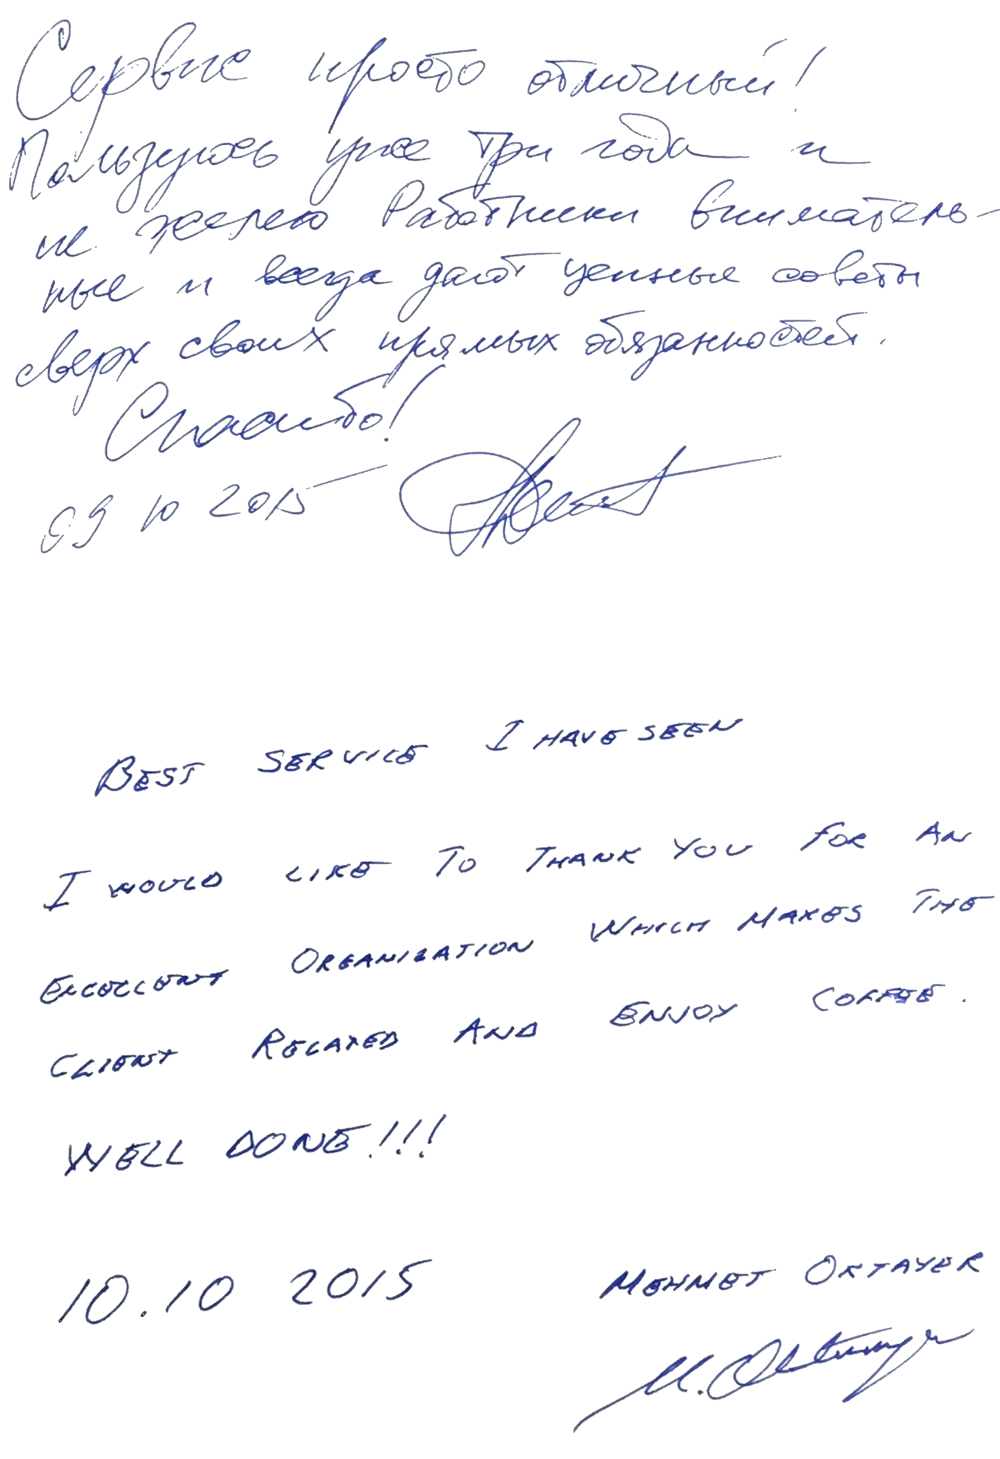 Сервис просто отличный!
Пользуюсь уже три года и
не жалею Работники вниматель-
ные и всегда дают ценные советы
сверх своих прямых обязанностей.
Спасибо!
09 10 2015
BEST SERVICE I HAVE SEEN
I WOULD LIKE TO THANK YOU FOR AN
EXCELLENT ORGANIZATION WHICH MAKES THE
CLIENT RELAXED AND ENJOY COFFEE.
WELL DONE!!!
10.10 2015
MEHMET OKTAYER